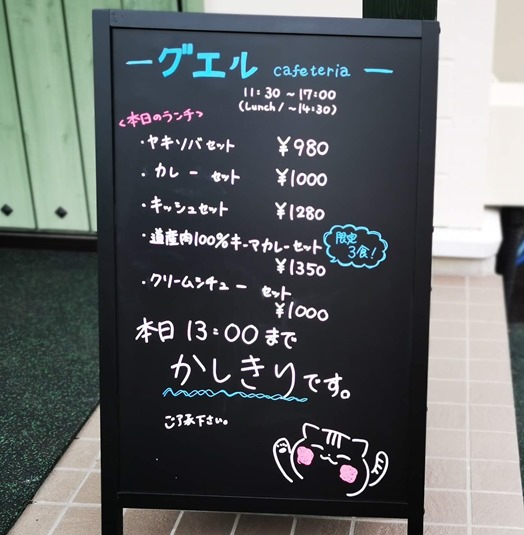 ーグエル cafeteria ー
11:30～17:00
(Lunch/～14:30)
<本日のランチ>
・ヤキソバセット ¥980
・カレーセット ¥1000
・キッシュセット ¥1280
・道産肉100%キーマカレーセット
限定
3食!
¥1350
・クリームシチューセット
¥1000
本日13:00まで
かしきりです。
ご了承下さい。